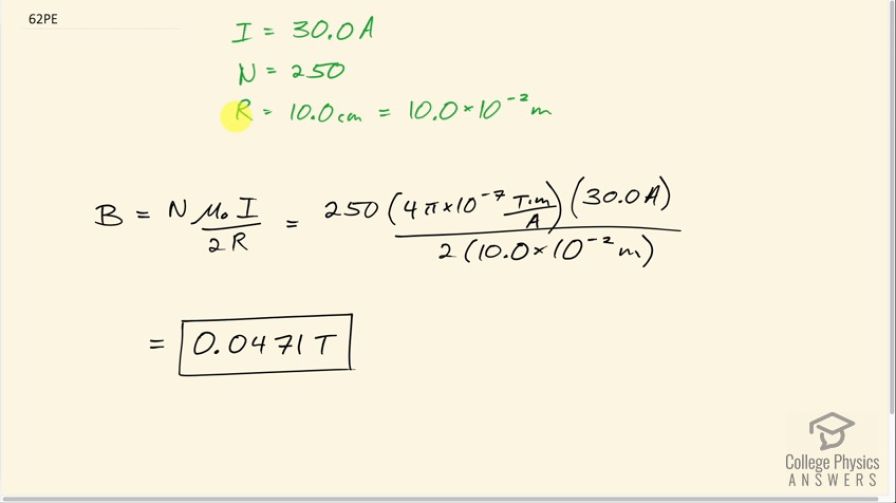 62PE
I = 30.0 A
N = 250
R = 10.0 cm = 10.0 × 10⁻² m
B = N μ₀ I / 2 R = 250 (4π × 10⁻⁷ T·m/A) (30.0 A) / 2 (10.0 × 10⁻² m)
= 0.0471 T
College Physics
ANSWERS